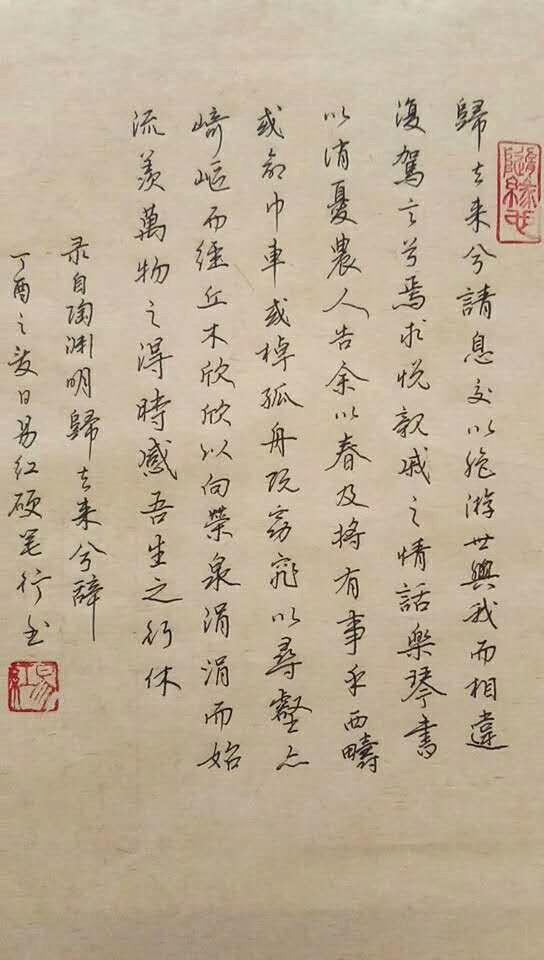 歸去来兮請息交以绝游世與我而相違
復駕言兮焉求悦親戚之情話樂琴書
以消憂農人告余以春及将有事乎西疇
或命巾車或棹孤舟既窈窕以尋壑亦
崎嶇而經丘木欣欣以向榮泉涓涓而始
流羡萬物之得時感吾生之行休
录自陶渊明歸去来兮辭
丁酉之夏日易红硬笔行书
隨緣
易红